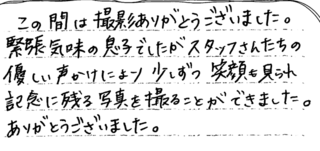 この間は撮影ありがとうございました。
緊張気味の息子でしたがスタッフさんたちの
優しい声かけにより少しずつ笑顔も見られ
記念に残る写真を撮ることができました。
ありがとうございました。